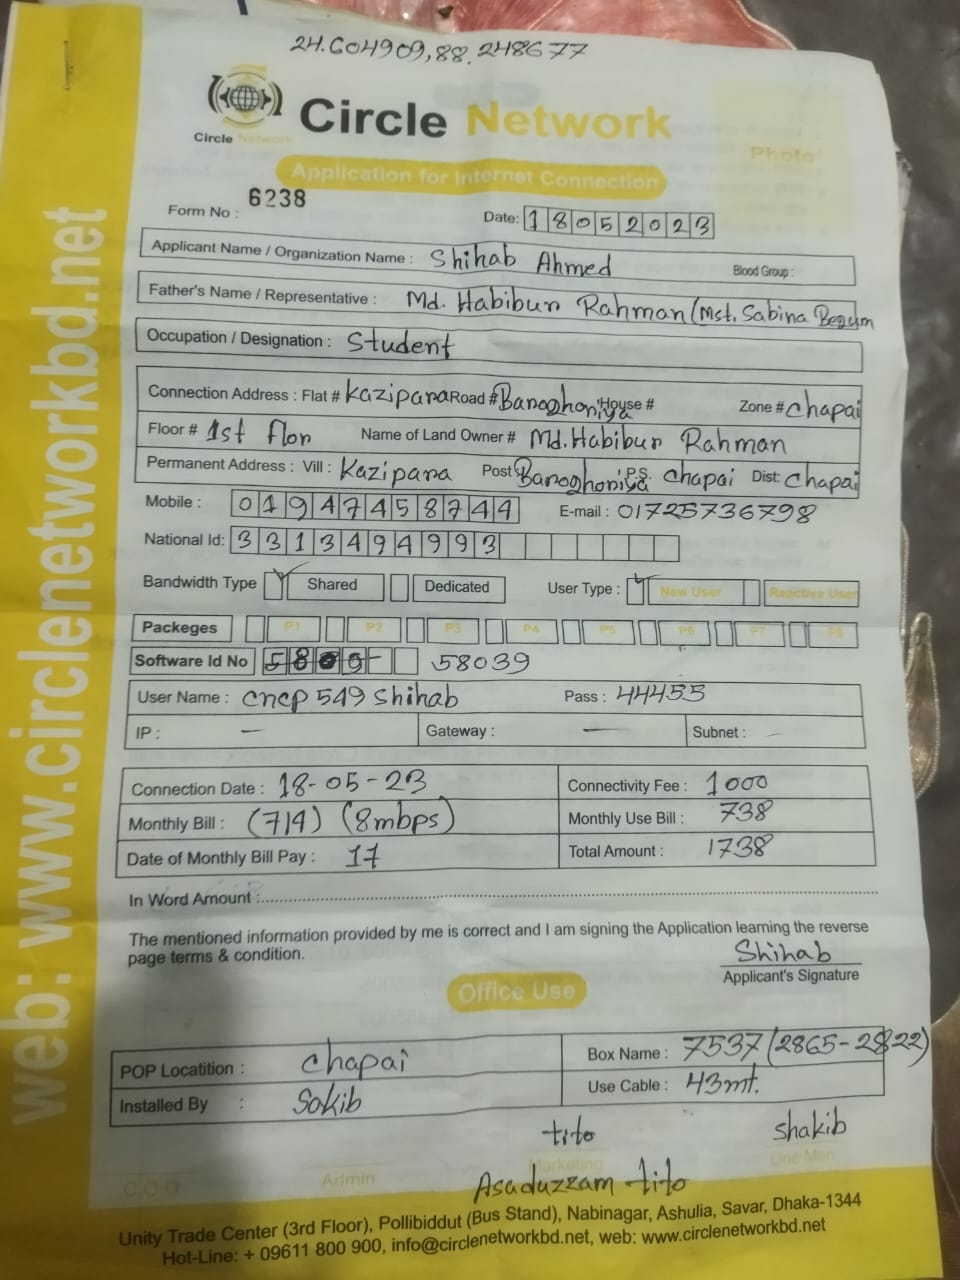 24.604909,88.248677
Circle Network
Circle Network
Photo
Application for Internet Connection
Form No : 6238
Date: 18052023
Applicant Name / Organization Name : Shihab Ahmed Blood Group :
Father's Name / Representative : Md. Habibur Rahman (Mst. Sabina Begum
Occupation / Designation : Student
Connection Address : Flat # Kazipara Road # Baroghoriya House # Zone # Chapai
Floor # 1st flor Name of Land Owner # Md. Habibur Rahman
Permanent Address : Vill : Kazipara Post Baroghoriya P.S. Chapai Dist: Chapai
Mobile : 01947458744
E-mail : 01725736798
National Id: 3313494993
Bandwidth Type Shared Dedicated User Type : New User Reactive User
Packeges P1 P2 P3 P4 P5 P6 P7 P8
Software Id No 58039
User Name : cncp 549 shihab Pass : 44455
IP : — Gateway : — Subnet : —
Connection Date : 18-05-23 Connectivity Fee : 1000
Monthly Bill : (714) (8mbps) Monthly Use Bill : 738
Date of Monthly Bill Pay : 17 Total Amount : 1738
In Word Amount :
The mentioned information provided by me is correct and I am signing the Application learning the reverse
page terms & condition.
Shihab
Applicant's Signature
Office Use
POP Locatition : Chapai Box Name : 7537 (2865-2822)
Installed By : Sakib Use Cable : 43mt.
tito shakib
C.O.O Admin Marketing Line Men
Asaduzzam tito
Unity Trade Center (3rd Floor), Pollibiddut (Bus Stand), Nabinagar, Ashulia, Savar, Dhaka-1344
Hot-Line: + 09611 800 900, info@circlenetworkbd.net, web: www.circlenetworkbd.net
web: www.circlenetworkbd.net